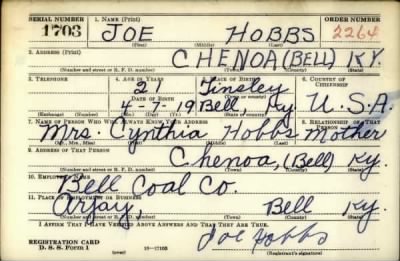 SERIAL NUMBER 1. NAME (Print) ORDER NUMBER
1703 JOE HOBBS 2264
(First) (Middle) (Last)
2. ADDRESS (Print)
CHENOA (BELL) KY.
(Number and street or R. F. D. number) (Town) (County) (State)
3. TELEPHONE 4. AGE IN YEARS 5. PLACE OF BIRTH 6. COUNTRY OF CITIZENSHIP
21 Tinsley
DATE OF BIRTH
4-7-19 Bell, Ky U.S.A.
(Exchange) (Number) (Mo.) (Day) (Yr.) (State or country)
7. NAME OF PERSON WHO WILL ALWAYS KNOW YOUR ADDRESS 8. RELATIONSHIP OF THAT PERSON
Mrs. Cynthia Hobbs Mother
(Mr., Mrs., Miss) (First) (Middle) (Last)
9. ADDRESS OF THAT PERSON
Chenoa, (Bell) Ky.
(Number and street or R. F. D. number) (Town) (County) (State)
10. EMPLOYER'S NAME
Bell Coal Co.
11. PLACE OF EMPLOYMENT OR BUSINESS
Arjay, Bell Ky.
(Number and street or R. F. D. number) (Town) (County) (State)
I AFFIRM THAT I HAVE VERIFIED ABOVE ANSWERS AND THAT THEY ARE TRUE.
REGISTRATION CARD
D. S. S. Form 1 16-17105 Joe Hobbs
(Registrant's signature)